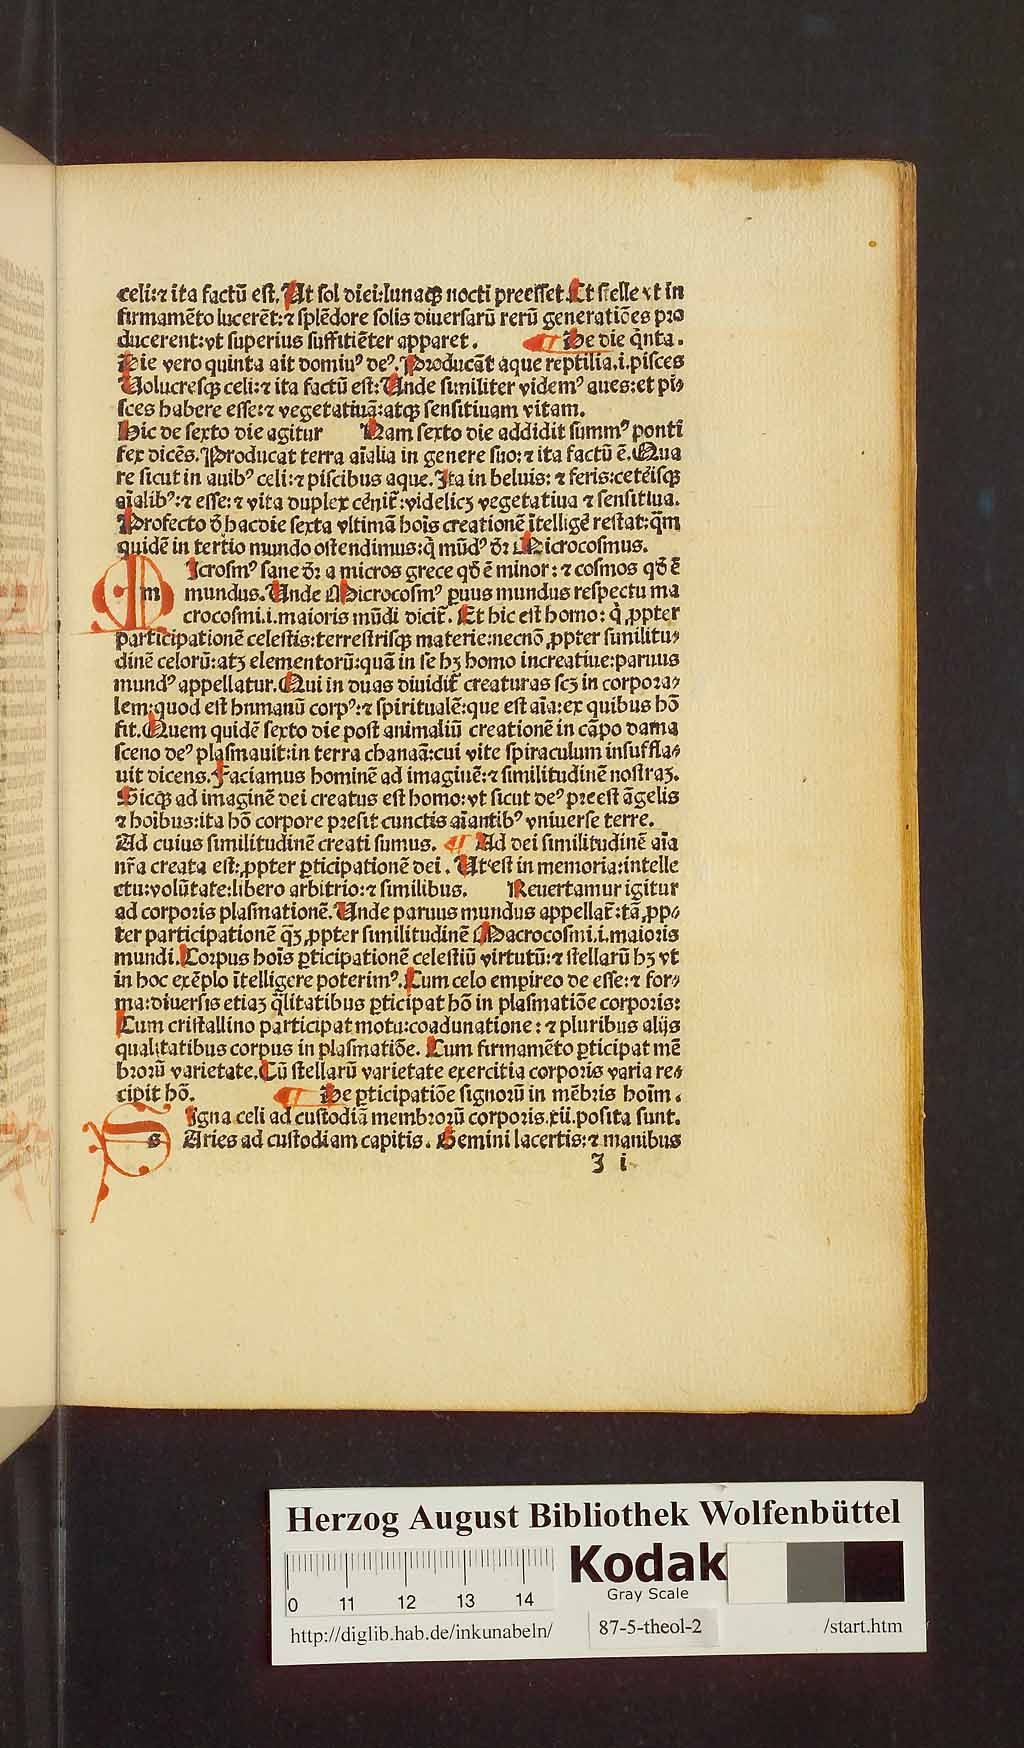 celi:⁊ ita factū eſt. Ut ſol diei:lunaqꝫ nocti preeſſet. Et ſtelle vt in
firmamēto lucerēt:⁊ ſplēdore ſolis diuerſarū rerū generatiōes pro
ducerent:vt ſuperius ſuffitiēter apparet. De die q̄nta.
Die vero quinta ait domiuꝰ deꝰ. Producāt aque reptilia.i.piſces
Uolucreſqꝫ celi:⁊ ita factū eſt: Unde ſimiliter videmꝰ aues:et pi⸗
ſces habere eſſe:⁊ vegetatiuā:atqꝫ ſenſitiuam vitam.
Hic de ſexto die agitur Nam ſexto die addidit ſummꝰ ponti
fex dicēs. Producat terra aīalia in genere ſuo:⁊ ita factū ē. Qua
re ſicut in auibꝰ celi:⁊ piſcibus aque. Ita in beluis:⁊ feris:ceteīſqꝫ
aīalibꝰ:⁊ eſſe:⁊ vita duplex cēnit̄:videlicꝫ vegetatiua ⁊ ſenſitiua.
Profecto ō hacdie ſexta vltimā hoīs creationē ītelligē reſtat:qm̄
quidē in tertio mundo oſtendimus:q̄ mūdꝰ dꝛ̄ Microcoſmus.
m Icroſmꝰ ſane dꝛ̄ a micros grece qd̄ ē minor:⁊ coſmos qd̄ ē
mundus. Unde Microcoſmꝰ ꝑuus mundus reſpectu ma
crocoſmi.i.maioris mūdi dicit̄. Et hic eſt homo:q̄ ꝓpter
participationē celeſtis:terreſtriſqꝫ materie:necnō ꝓpter ſimilitu⸗
dinē celorū:atꝫ elementorū:quā in ſe hꝫ homo increatiue:paruus
mundꝰ appellatur. Qui in duas diuidit̄ creaturas ſcꝫ in corpora⸗
lem:quod eſt hnmanū corpꝰ:⁊ ſpiritualē:que eſt aīa:ex quibus hō
fit. Quem quidē ſexto die poſt animaliū creationē in cāpo dama
ſceno deꝰ plaſmauit:in terra chanaā:cui vite ſpiraculum inſuffla⸗
uit dicens. Faciamus hominē ad imaginē:⁊ ſimilitudinē noſtraꝫ.
Sicqꝫ ad imaginē dei creatus eſt homo:vt ſicut deꝰ preeſt āgelis
⁊ hoībus:ita hō corpore preſit cunctis aīantibꝰ vniuerſe terre.
Ad cuius ſimilitudinē creati ſumus. ¶ Ad dei ſimilitudinē aīa
nr̄a creata eſt:ꝓpter ꝑticipationē dei. Ut eſt in memoria:intelle
ctu:volūtate:libero arbitrio:⁊ ſimilibus. Reuertamur igitur
ad corporis plaſmationē. Unde paruus mundus appellat̄:tā ꝓp⸗
ter participationē qꝫ̄ ꝓpter ſimilitudinē Macrocoſmi.i.maioris
mundi. Corpus hoīs ꝑticipationē celeſtiū virtutū:⁊ ſtellarū hꝫ vt
in hoc exēplo ītelligere poterimꝰ. Cum celo empireo de eſſe:⁊ for⸗
ma:diuerſis etiaꝫ q̄litatibus ꝑticipat hō in plaſmatiōe corporis:
Cum criſtallino participat motu:coadunatione:⁊ pluribus alijs
qualitatibus corpus in plaſmatiōe. Cum firmamēto ꝑticipat mē
brorū varietate. Cū ſtellarū varietate exercitia corporis varia re⸗
cipit hō. ¶ De ꝑticipatiōe ſignorū in mēbris hoīm.
s Igna celi ad cuſtodiā membrorū corporis.xii.poſita ſunt.
Aries ad cuſtodiam capitis. Gemini lacertis:⁊ manibus
3 i
Herzog August Bibliothek Wolfenbüttel
Kodak
Gray Scale
0 11 12 13 14
http://diglib.hab.de/inkunabeln/ 87-5-theol-2 /start.htm